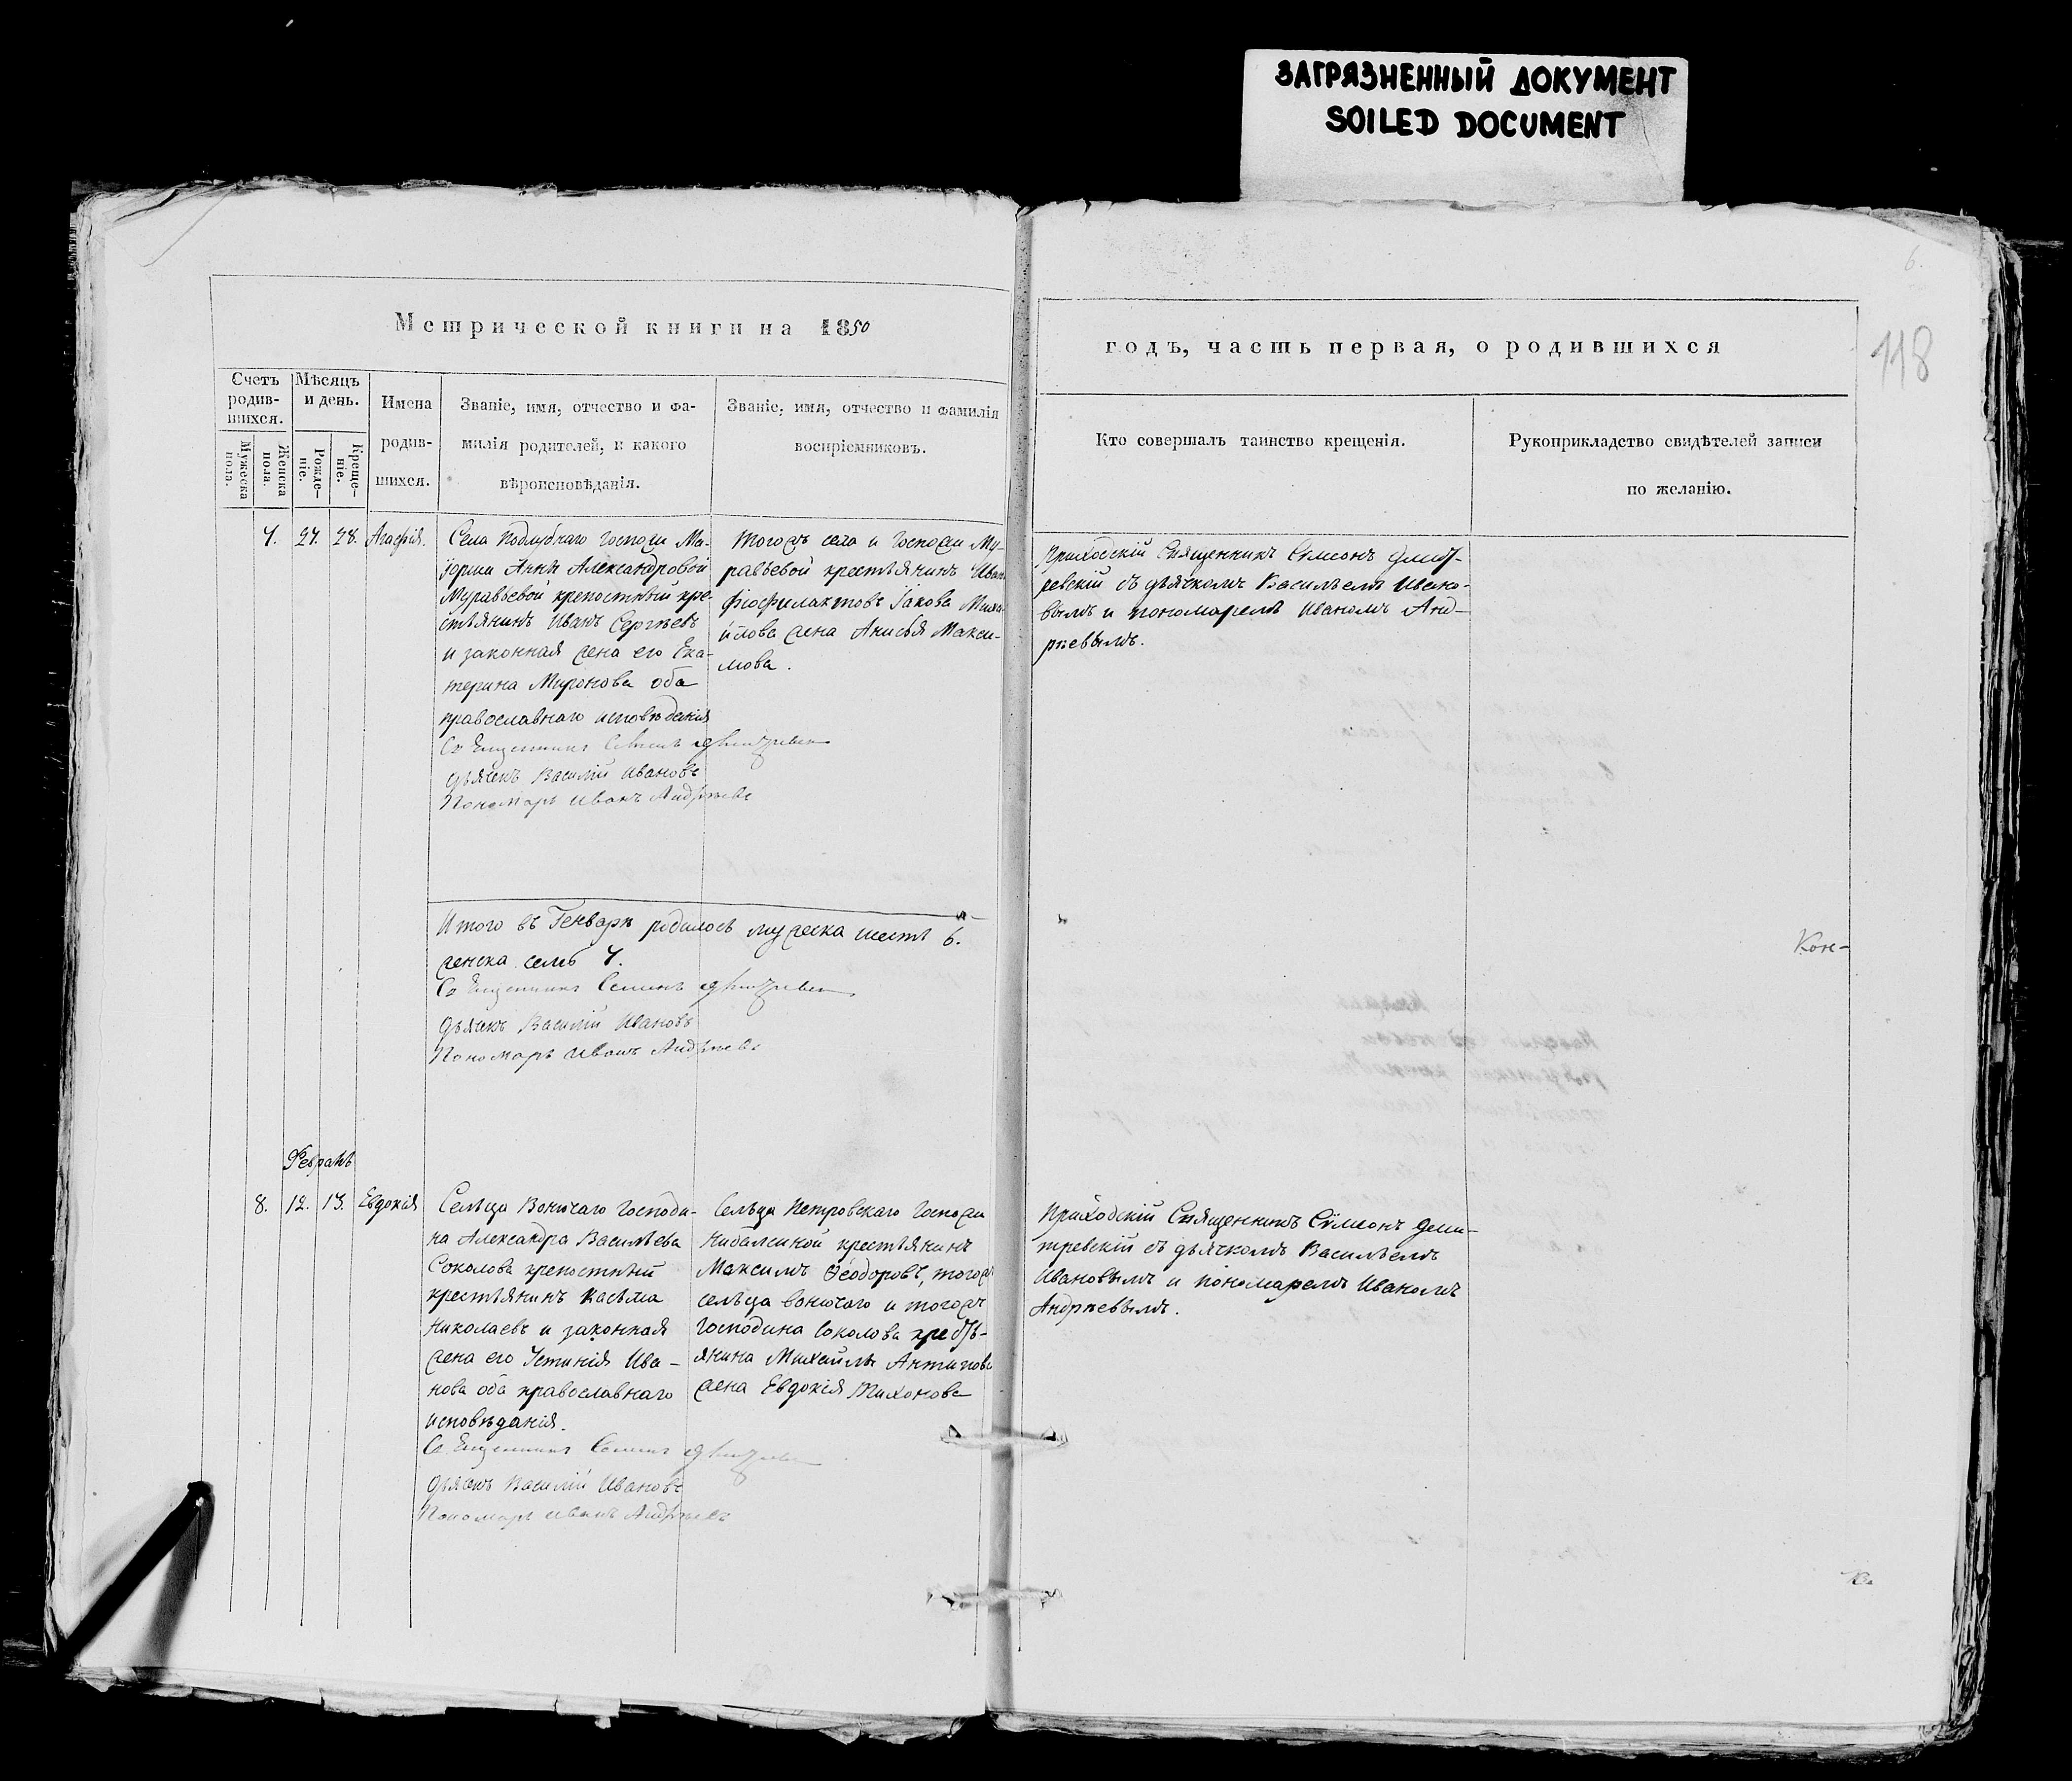 ЗАГРЯЗНЕННЫЙ ДОКУМЕНТ
SOILED DOCUMENT
6.
118
Метрической книги на 1850
годъ, часть первая, о родившихся
Счетъ родив-шихся.
Мужеска пола.
Женска пола.
Мѣсяцъ и день.
Рожде-ніе.
Креще-ніе.
Имена родив-шихся.
Званіе, имя, отчество и фа-
милія родителей, и какого
вѣроисповѣданія.
Званіе, имя, отчество и фамилія
воспріемниковъ.
Кто совершалъ таинство крещенія.
Рукоприкладство свидѣтелей записи
по желанію.
7. 27. 28. Агафія.
Села Подлубнаго Госпожи Ма-
іорши Анны Александровой
Муравьевой крепостный кре-
стьянинъ Иванъ Сергѣевъ
и законная жена его Ека-
терина Миронова оба
православнаго исповѣданія
Священникъ Симеонъ
дьячекъ Василій Ивановъ
Пономарь Иванъ Андрѣевъ
Тогожъ села и Госпожи Му-
равьевой крестьянинъ Иван
Феофилактовъ Іакова Миха-
йлова жена Анисья Макси-
мова.
Приходскій Священникъ Сѵмеонъ Дмит-
ревскій съ дьячкомъ Васильемъ Ивано-
вымъ и пономаремъ Иваномъ Анд-
рѣевымъ.
Итого въ Генварѣ родилось мужеска шесть 6.
женска семь 7.
Священникъ Симеонъ
Дьячекъ Василій Ивановъ
Пономарь Иванъ Андрѣевъ
Кон-
Февраль
8. 12. 13. Евдокія
Сельца Вонючаго Господи-
на Александра Васильева
Соколова крепостный
крестьянинъ Касьма
Николаевъ и законная
жена его Устинія Ива-
нова оба православнаго
исповѣданія.
Священникъ Симеонъ
Дьячекъ Василій Ивановъ
Пономарь Иванъ Андрѣевъ
Сельца Петровскаго Госпожи
крестьянинъ
Максимъ Ѳеодоровъ, тогожъ
сельца вонючаго и тогожъ
Господина Соколова кресть-
янина Михаилы Антипова
жена Евдокія Тихонова
Приходскій Священникъ Сѵмеонъ Дми-
тревскій съ дьячкомъ Васильемъ
Ивановымъ и пономаремъ Иваномъ
Андрѣевымъ.